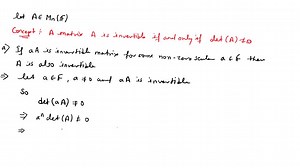 let A ∈ Mn(F)
Concept : A matrix A is invertible if and only if det(A) ≠ 0
A) If aA is invertible matrix for some non-zero scalar a ∈ F then
A is also invertible
⇒ let a ∈ F, a ≠ 0 and aA is invertible
So
det(aA) ≠ 0
⇒ aⁿ det(A) ≠ 0
⇒